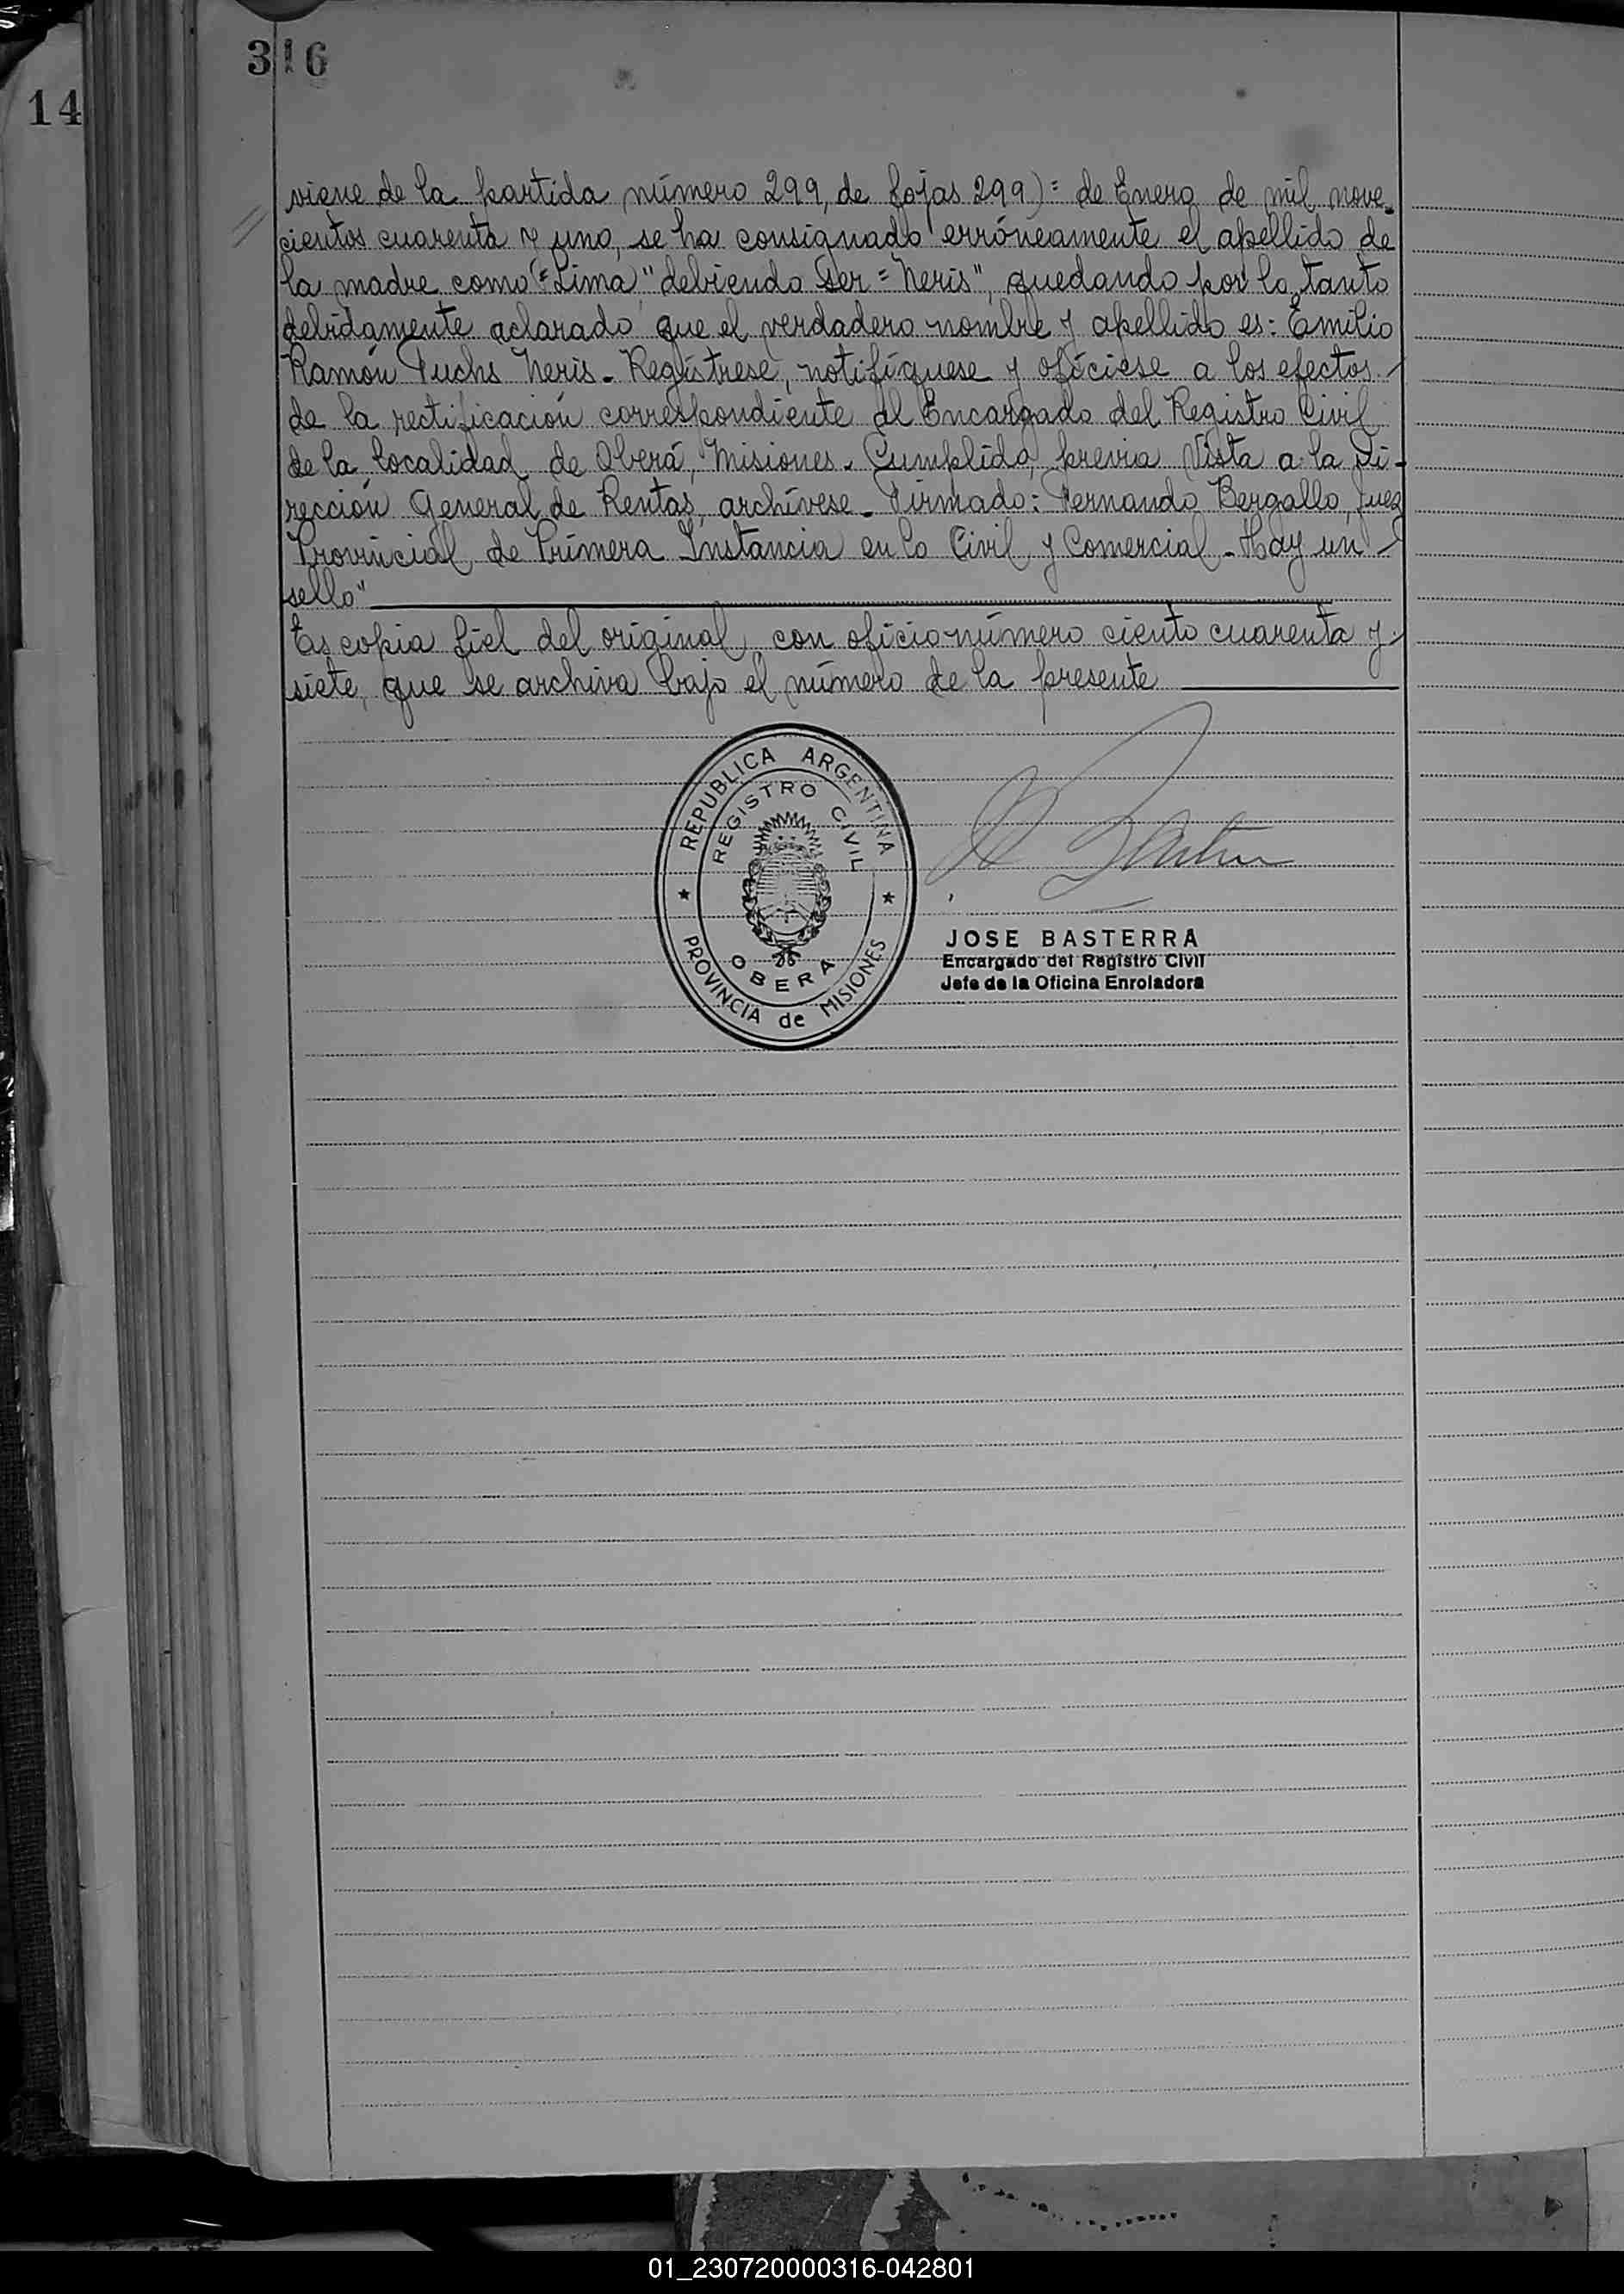 316
14
viene de la partida número 299, de fojas 299)= de Enero de mil nove-
cientos cuarenta y uno, se ha consignado erróneamente el apellido de
la madre como "=Lima" debiendo ser = Neris", quedando por lo tanto
debidamente aclarado que el verdadero nombre y apellido es: Emilio
Ramón Fuchs Neris. Regístrese, notifíquese y ofíciese a los efectos
de la rectificación correspondiente al Encargado del Registro Civil
de la localidad de Oberá, Misiones. Cumplido, previa Vista a la Di-
rección General de Rentas, archívese. Firmado: Fernando Bergallo, Juez
Provincial de Primera Instancia en lo Civil y Comercial - Hay un
sello"
Es copia fiel del original, con oficio número ciento cuarenta y
siete, que se archiva bajo el número de la presente
REPUBLICA ARGENTINA
REGISTRO CIVIL
OBERA
PROVINCIA de MISIONES
JOSE BASTERRA
Encargado del Registro Civil
Jefe de la Oficina Enroladora
01_230720000316-042801